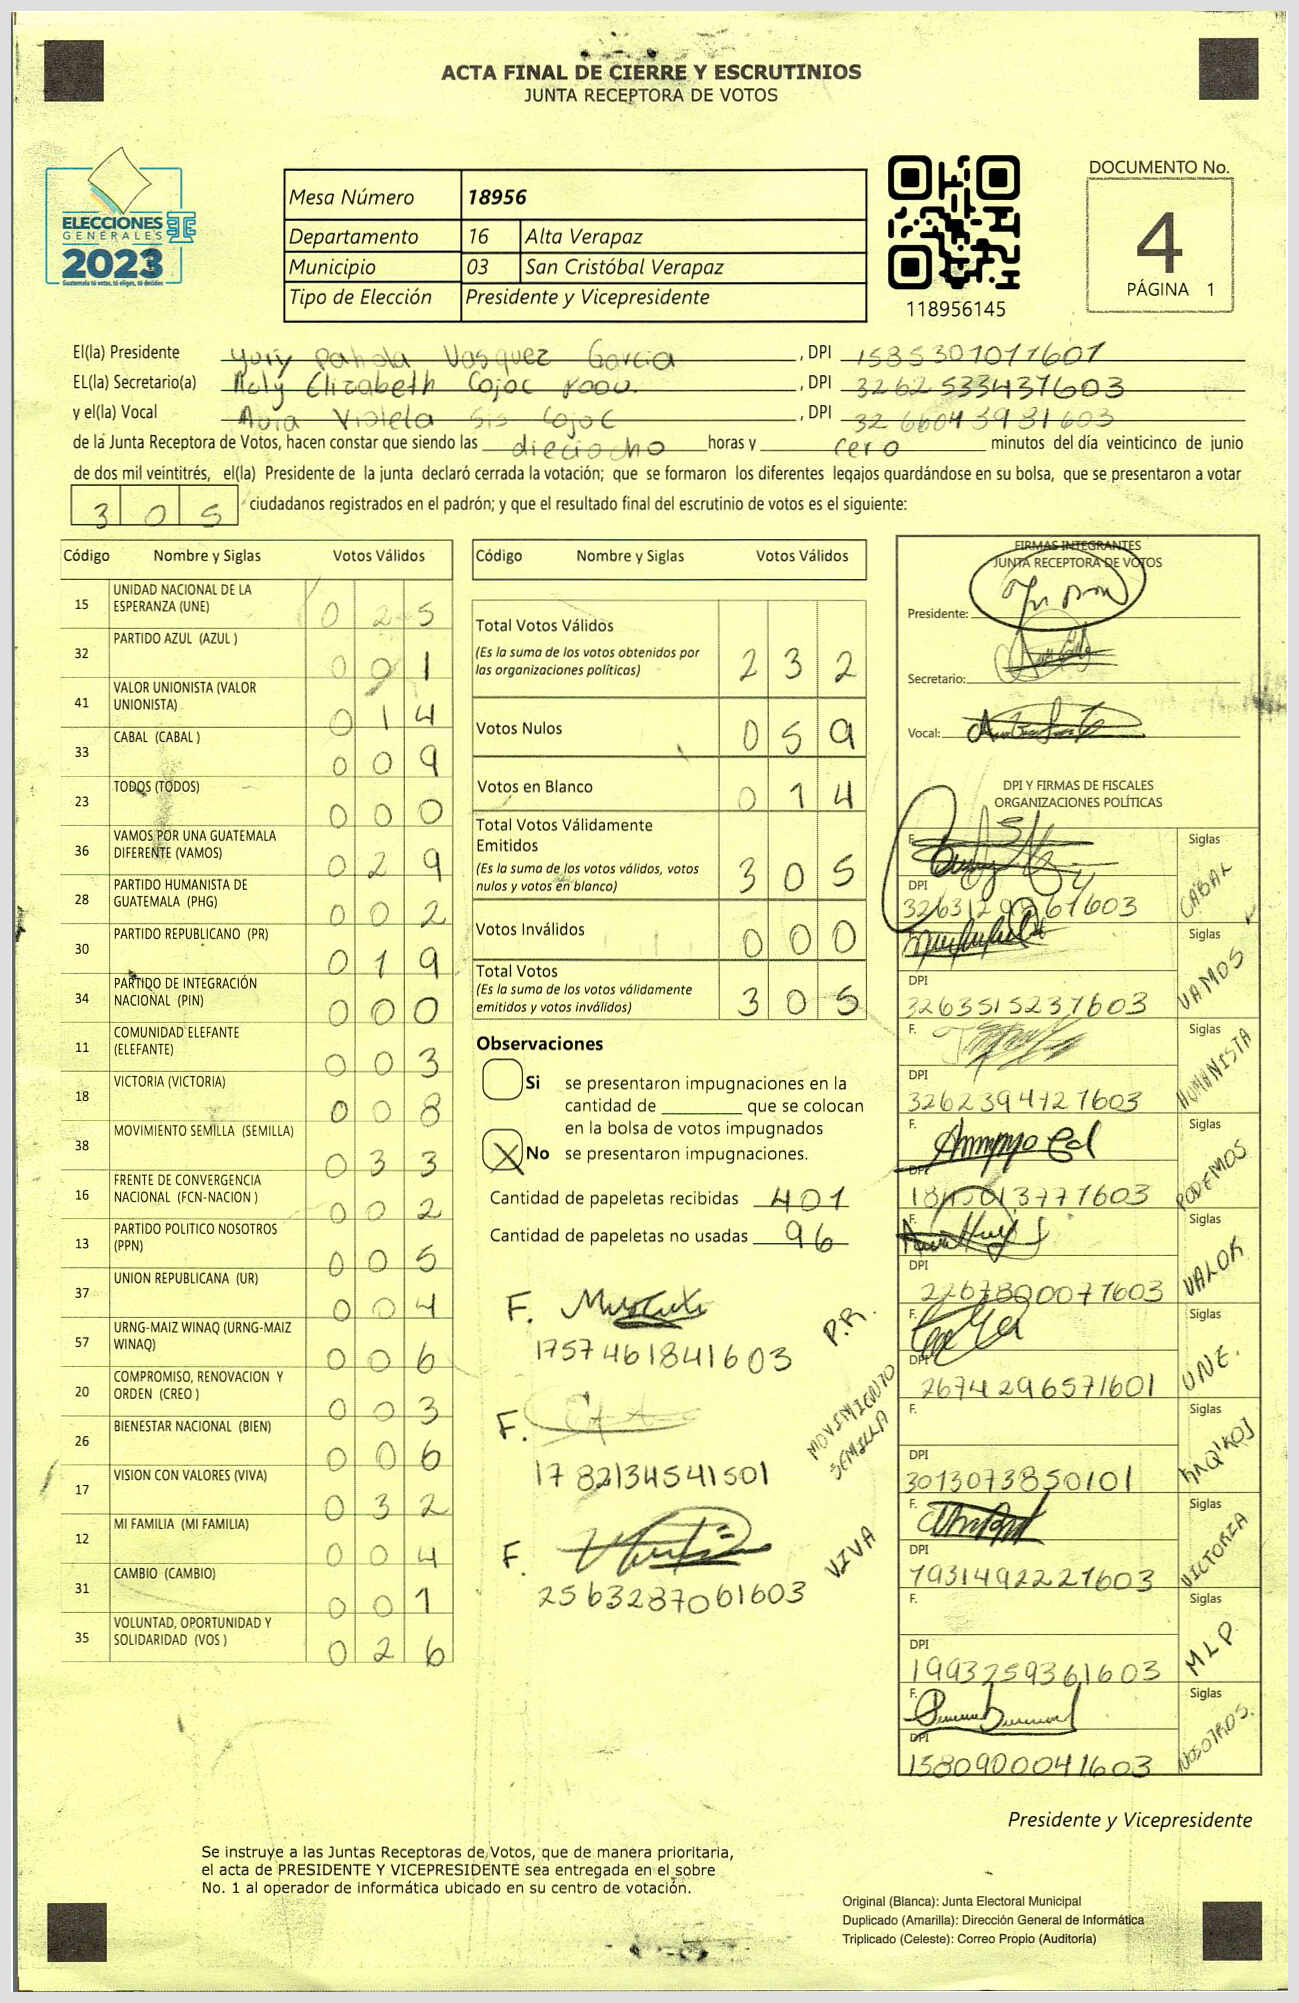 ACTA FINAL DE CIERRE Y ESCRUTINIOS
JUNTA RECEPTORA DE VOTOS
ELECCIONES
GENERALES
2023
Guatemala tú votas, tú eliges, tú decides
Mesa Número 18956
Departamento 16 Alta Verapaz
Municipio 03 San Cristóbal Verapaz
Tipo de Elección Presidente y Vicepresidente
118956145
DOCUMENTO No.
4
PÁGINA 1
El(la) Presidente Yury Pahola Vasquez Garcia, DPI 1585301071601
EL(la) Secretario(a) Elizabeth Cojoc, DPI 3262533437603
y el(la) Vocal Aura Violeta Sis Cojoc, DPI 3266043931603
de la Junta Receptora de Votos, hacen constar que siendo las dieciocho horas y cero minutos del día veinticinco de junio
de dos mil veintitrés, el(la) Presidente de la junta declaró cerrada la votación; que se formaron los diferentes legajos guardándose en su bolsa, que se presentaron a votar
305 ciudadanos registrados en el padrón; y que el resultado final del escrutinio de votos es el siguiente:
Código Nombre y Siglas Votos Válidos
15 UNIDAD NACIONAL DE LA ESPERANZA (UNE) 025
32 PARTIDO AZUL (AZUL ) 001
41 VALOR UNIONISTA (VALOR UNIONISTA) 014
33 CABAL (CABAL ) 009
23 TODOS (TODOS) 000
36 VAMOS POR UNA GUATEMALA DIFERENTE (VAMOS) 029
28 PARTIDO HUMANISTA DE GUATEMALA (PHG) 002
30 PARTIDO REPUBLICANO (PR) 019
34 PARTIDO DE INTEGRACIÓN NACIONAL (PIN) 000
11 COMUNIDAD ELEFANTE (ELEFANTE) 003
18 VICTORIA (VICTORIA) 008
38 MOVIMIENTO SEMILLA (SEMILLA) 033
16 FRENTE DE CONVERGENCIA NACIONAL (FCN-NACION ) 002
13 PARTIDO POLITICO NOSOTROS (PPN) 005
37 UNION REPUBLICANA (UR) 004
57 URNG-MAIZ WINAQ (URNG-MAIZ WINAQ) 006
20 COMPROMISO, RENOVACION Y ORDEN (CREO ) 003
26 BIENESTAR NACIONAL (BIEN) 006
17 VISION CON VALORES (VIVA) 032
12 MI FAMILIA (MI FAMILIA) 004
31 CAMBIO (CAMBIO) 001
35 VOLUNTAD, OPORTUNIDAD Y SOLIDARIDAD (VOS ) 026
Código Nombre y Siglas Votos Válidos
Total Votos Válidos 232
(Es la suma de los votos obtenidos por
las organizaciones políticas)
Votos Nulos 059
Votos en Blanco 014
Total Votos Válidamente
Emitidos 305
(Es la suma de los votos válidos, votos
nulos y votos en blanco)
Votos Inválidos 000
Total Votos 305
(Es la suma de los votos válidamente
emitidos y votos inválidos)
Observaciones
Si se presentaron impugnaciones en la
cantidad de ________ que se colocan
en la bolsa de votos impugnados
X No se presentaron impugnaciones.
Cantidad de papeletas recibidas 401
Cantidad de papeletas no usadas 96
F. P.R.
1757461841603
F. MOVIMIENTO SEMILLA
1782134541501
F. VIVA
2563287061603
FIRMAS INTEGRANTES
JUNTA RECEPTORA DE VOTOS
Presidente:
Secretario:
Vocal:
DPI Y FIRMAS DE FISCALES
ORGANIZACIONES POLÍTICAS
F. Siglas CABAL
DPI
F. Siglas VAMOS
DPI 3263515237603
F. Siglas HUMANISTA
DPI 3262394727603
F. Siglas PODEMOS
DPI
F. Siglas VALOR
DPI 2267800077603
F. Siglas UNE.
DPI 2674296571601
F. Siglas
DPI 3013073850101
F. Siglas VICTORIA
DPI 7931492227603
F. Siglas MLP
DPI 1993259361603
F. Siglas NOSOTROS.
DPI 1580900041603
Presidente y Vicepresidente
Se instruye a las Juntas Receptoras de Votos, que de manera prioritaria,
el acta de PRESIDENTE Y VICEPRESIDENTE sea entregada en el sobre
No. 1 al operador de informática ubicado en su centro de votación.
Original (Blanca): Junta Electoral Municipal
Duplicado (Amarilla): Dirección General de Informática
Triplicado (Celeste): Correo Propio (Auditoría)